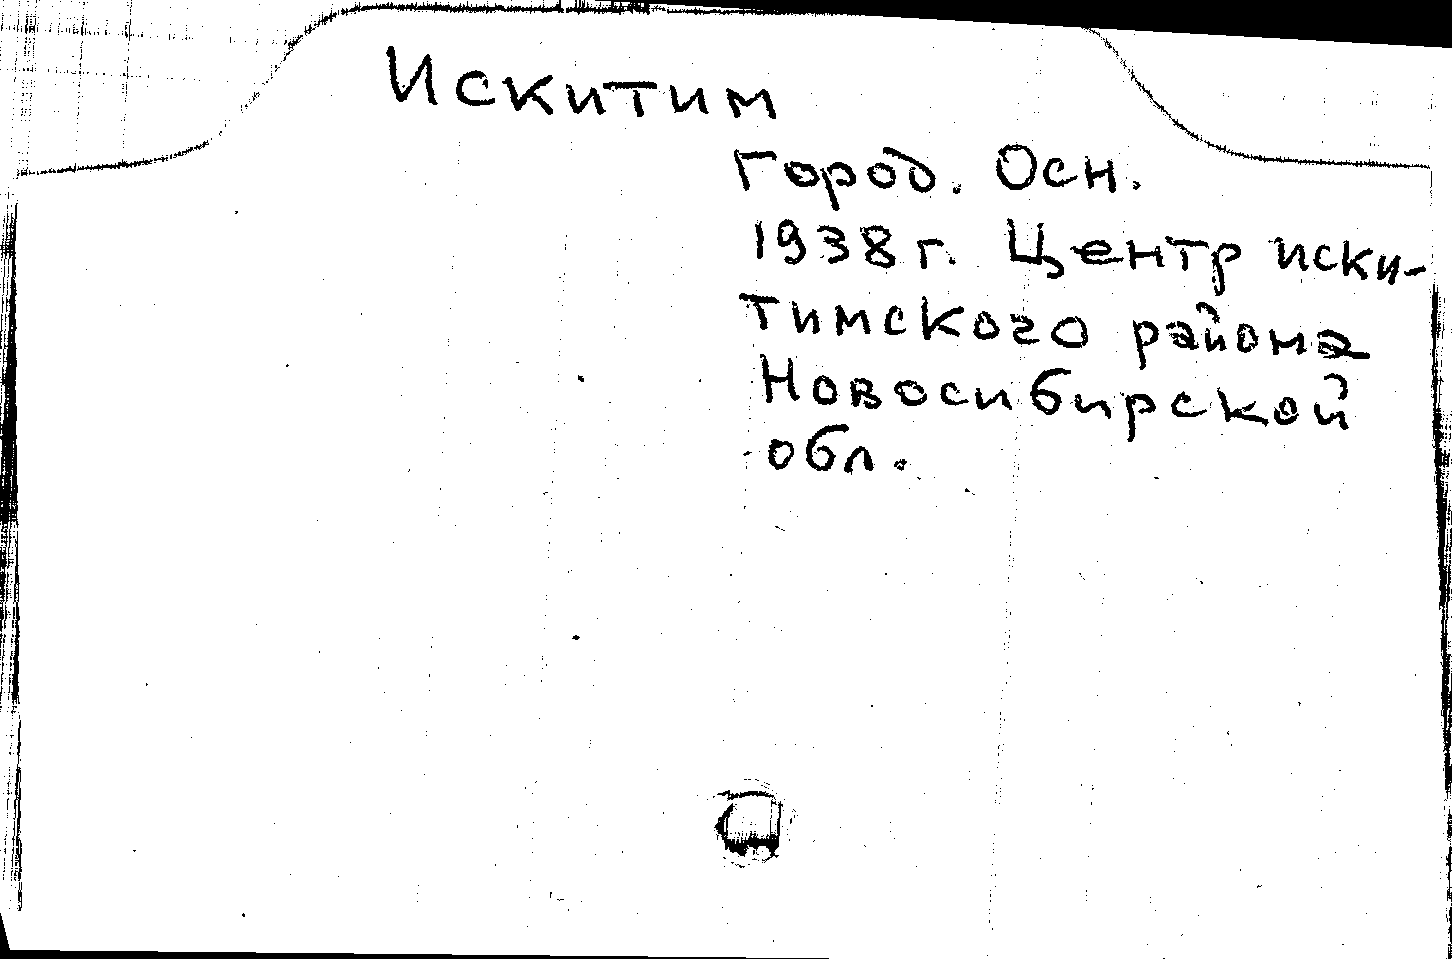 Искитим
Город. Осн.
1938 г. Центр иски-
тимского района
Новосибирской
обл.